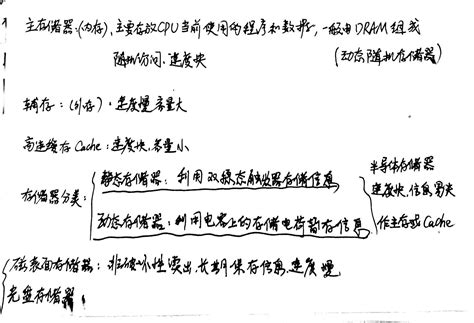 主存储器(内存),主要存放CPU当前使用的程序和数据,一般由DRAM组成
随机访问、速度快 (动态随机存储器)
辅存:(外存),速度慢 容量大
高速缓存Cache:速度快,容量小
存储器分类:
静态存储器:利用双稳态触发器存储信息
动态存储器:利用电容上的存储电荷暂存信息
半导体存储器
速度快,信息易失
作主存或Cache
磁表面存储器:非破坏性读出,长期保存信息,速度慢
光盘存储器